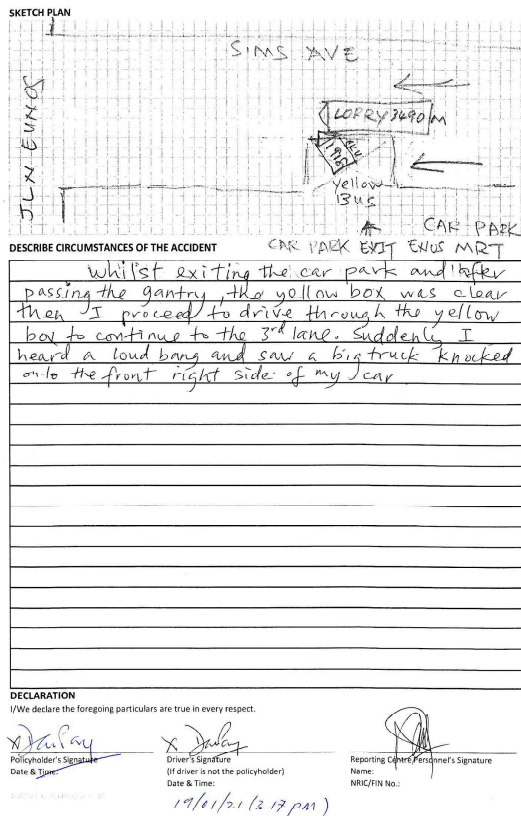 SKETCH PLAN
SIMS AVE
JLN EUNOS
LORRY 3490 M
1918
Yellow
Bus
CAR PARK
CAR PARK EXIT ENUS MRT
DESCRIBE CIRCUMSTANCES OF THE ACCIDENT
Whilst exiting the car park and after
passing the gantry, the yollow box was clear
then I proceed to drive through the yellow
box to continue to the 3rd lane. Suddenly I
heard a loud bang and saw a big truck knocked
onto the front right side of my car
DECLARATION
I/We declare the foregoing particulars are true in every respect.
X
X
Policyholder's Signature
Date & Time:
Driver's Signature
(If driver is not the policyholder)
Date & Time:
19/01/21 (3 17 PM)
Reporting Centre Personnel's Signature
Name:
NRIC/FIN No.: